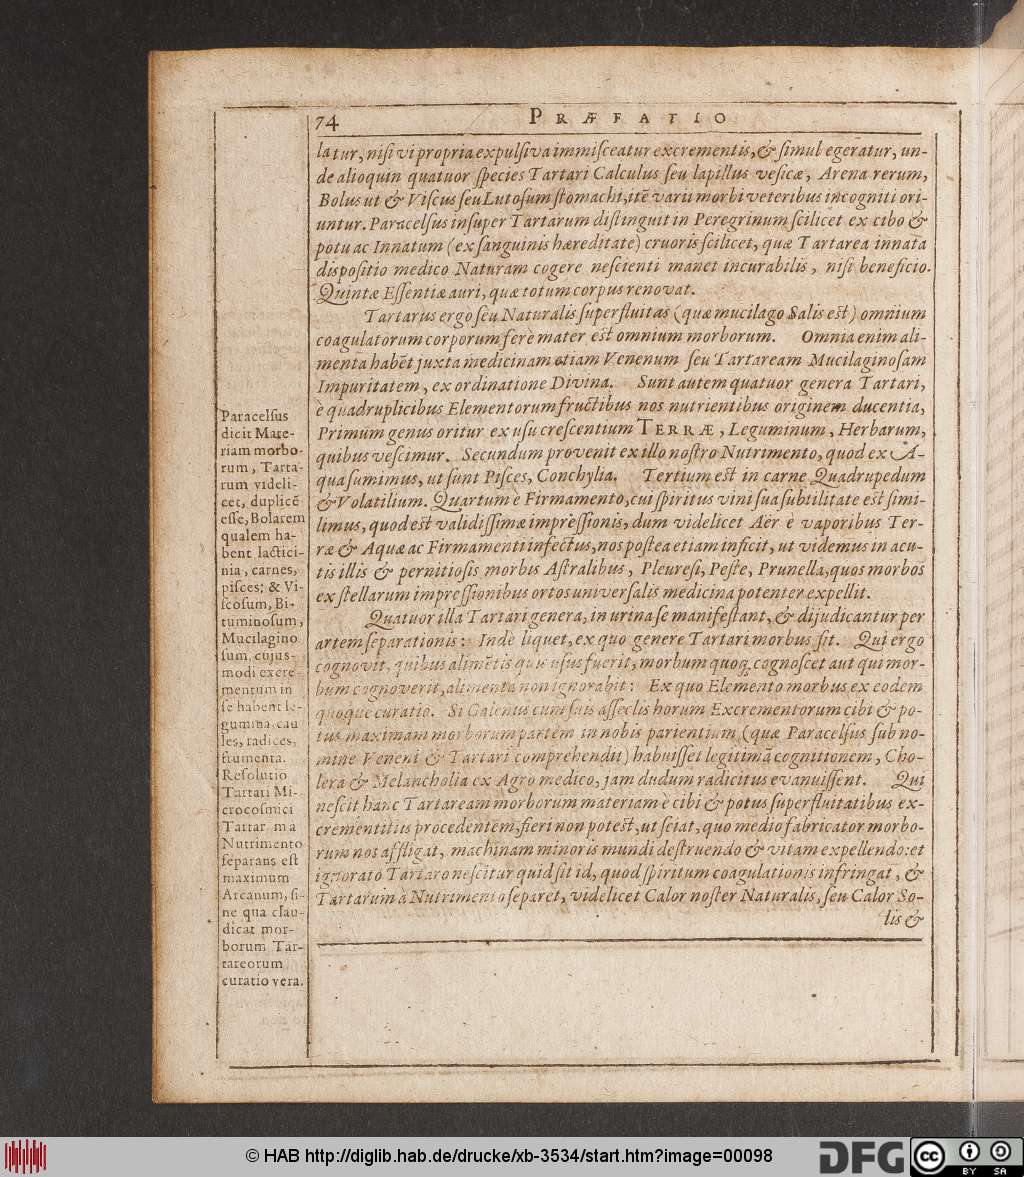 74
PRÆFATIO
latur, nisi vi propria expulsiva immisceatur excrementis, & simul egeratur, un-
de alioquin quatuor species Tartari Calculus seu lapillus vesicæ, Arena rerum,
Bolus ut & Viscus seu Lutosum stomachi, itē varii morbi veteribus incogniti ori-
untur. Paracelsus insuper Tartarum distinguit in Peregrinum scilicet ex cibo &
potu ac Innatum (ex sanguinis hæreditate) cruoris scilicet, quæ Tartarea innata
dispositio medico Naturam cogere nescienti manet incurabilis, nisi beneficio
Quintæ Essentiæ auri, quæ totum corpus renovat.
Tartarus ergo seu Naturalis superfluitas (quæ mucilago Salis est) omnium
coagulatorum corporum ferè mater est omnium morborum. Omnia enim ali-
menta habēt juxta medicinam etiam Venenum seu Tartaream Mucilaginosam
Impuritatem, ex ordinatione Divina. Sunt autem quatuor genera Tartari,
è quadruplicibus Elementorum fructibus nos nutrientibus originem ducentia,
Primum genus oritur ex usu crescentium TERRÆ, Leguminum, Herbarum,
quibus vescimur. Secundum provenit ex illo nostro Nutrimento, quod ex A-
qua sumimus, ut sunt Pisces, Conchylia. Tertium est in carne Quadrupedum
& Volatilium. Quartum è Firmamento, cui spiritus vini sua subtilitate est simi-
limus, quod est validissimæ impressionis, dum videlicet Aër è vaporibus Ter-
ræ & Aquæ ac Firmamenti infectus, nos postea etiam inficit, ut videmus in acu-
tis illis & pernitiosis morbis Astralibus, Pleuresi, Peste, Prunella, quos morbos
ex stellarum impressionibus ortos universalis medicina potenter expellit.
Quatuor illa Tartari genera, in urina se manifestant, & dijudicantur per
artem separationis: Inde liquet, ex quo genere Tartari morbus sit. Qui ergo
cognovit, quibus alimētis quis usus fuerit, morbum quoq; cognoscet aut qui mor-
bum cognoverit, alimenta non ignorabit: Ex quo Elemento morbus, ex eodem
quoque curatio. Si Galenus cum suis asseclis horum Excrementorum cibi & po-
tus maximam morborum partem in nobis parientium (quæ Paracelsus sub no-
mine Veneni & Tartari comprehendit) habuisset legitimā cognitionem, Cho-
lera & Melancholia ex Agro medico, jam dudum radicitus evanuissent. Qui
nescit hanc Tartaream morborum materiam è cibi & potus superfluitatibus ex-
crementitiis procedentem, fieri non potest, ut sciat, quo medio fabricator morbo-
rum nos affligat, machinam minoris mundi destruendo & vitam expellendo: et
ignorato Tartaro nescitur quid sit id, quod spiritum coagulationis infringat, &
Tartarum à Nutrimento separet, videlicet Calor noster Naturalis, seu Calor So-
lis &
Paracelsus
dicit Mate-
riam morbo-
rum, Tarta-
rum videli-
cet, duplicē
esse, Bolarem
qualem ha-
bent lactici-
nia, carnes,
pisces; & Vi-
scosum, Bi-
tuminosum,
Mucilagino
sum, cujus-
modi excre-
mentum in
se habent le-
gumina, cau
les, radices,
frumenta.
Resolutio
Tartari Mi-
crocosmici
Tartarũ à
Nutrimento
separans est
maximum
Arcanum, si-
ne qua clau-
dicat mor-
borum Tar-
tareorum
curatio vera.
© HAB http://diglib.hab.de/drucke/xb-3534/start.htm?image=00098
DFG
cc
BY SA